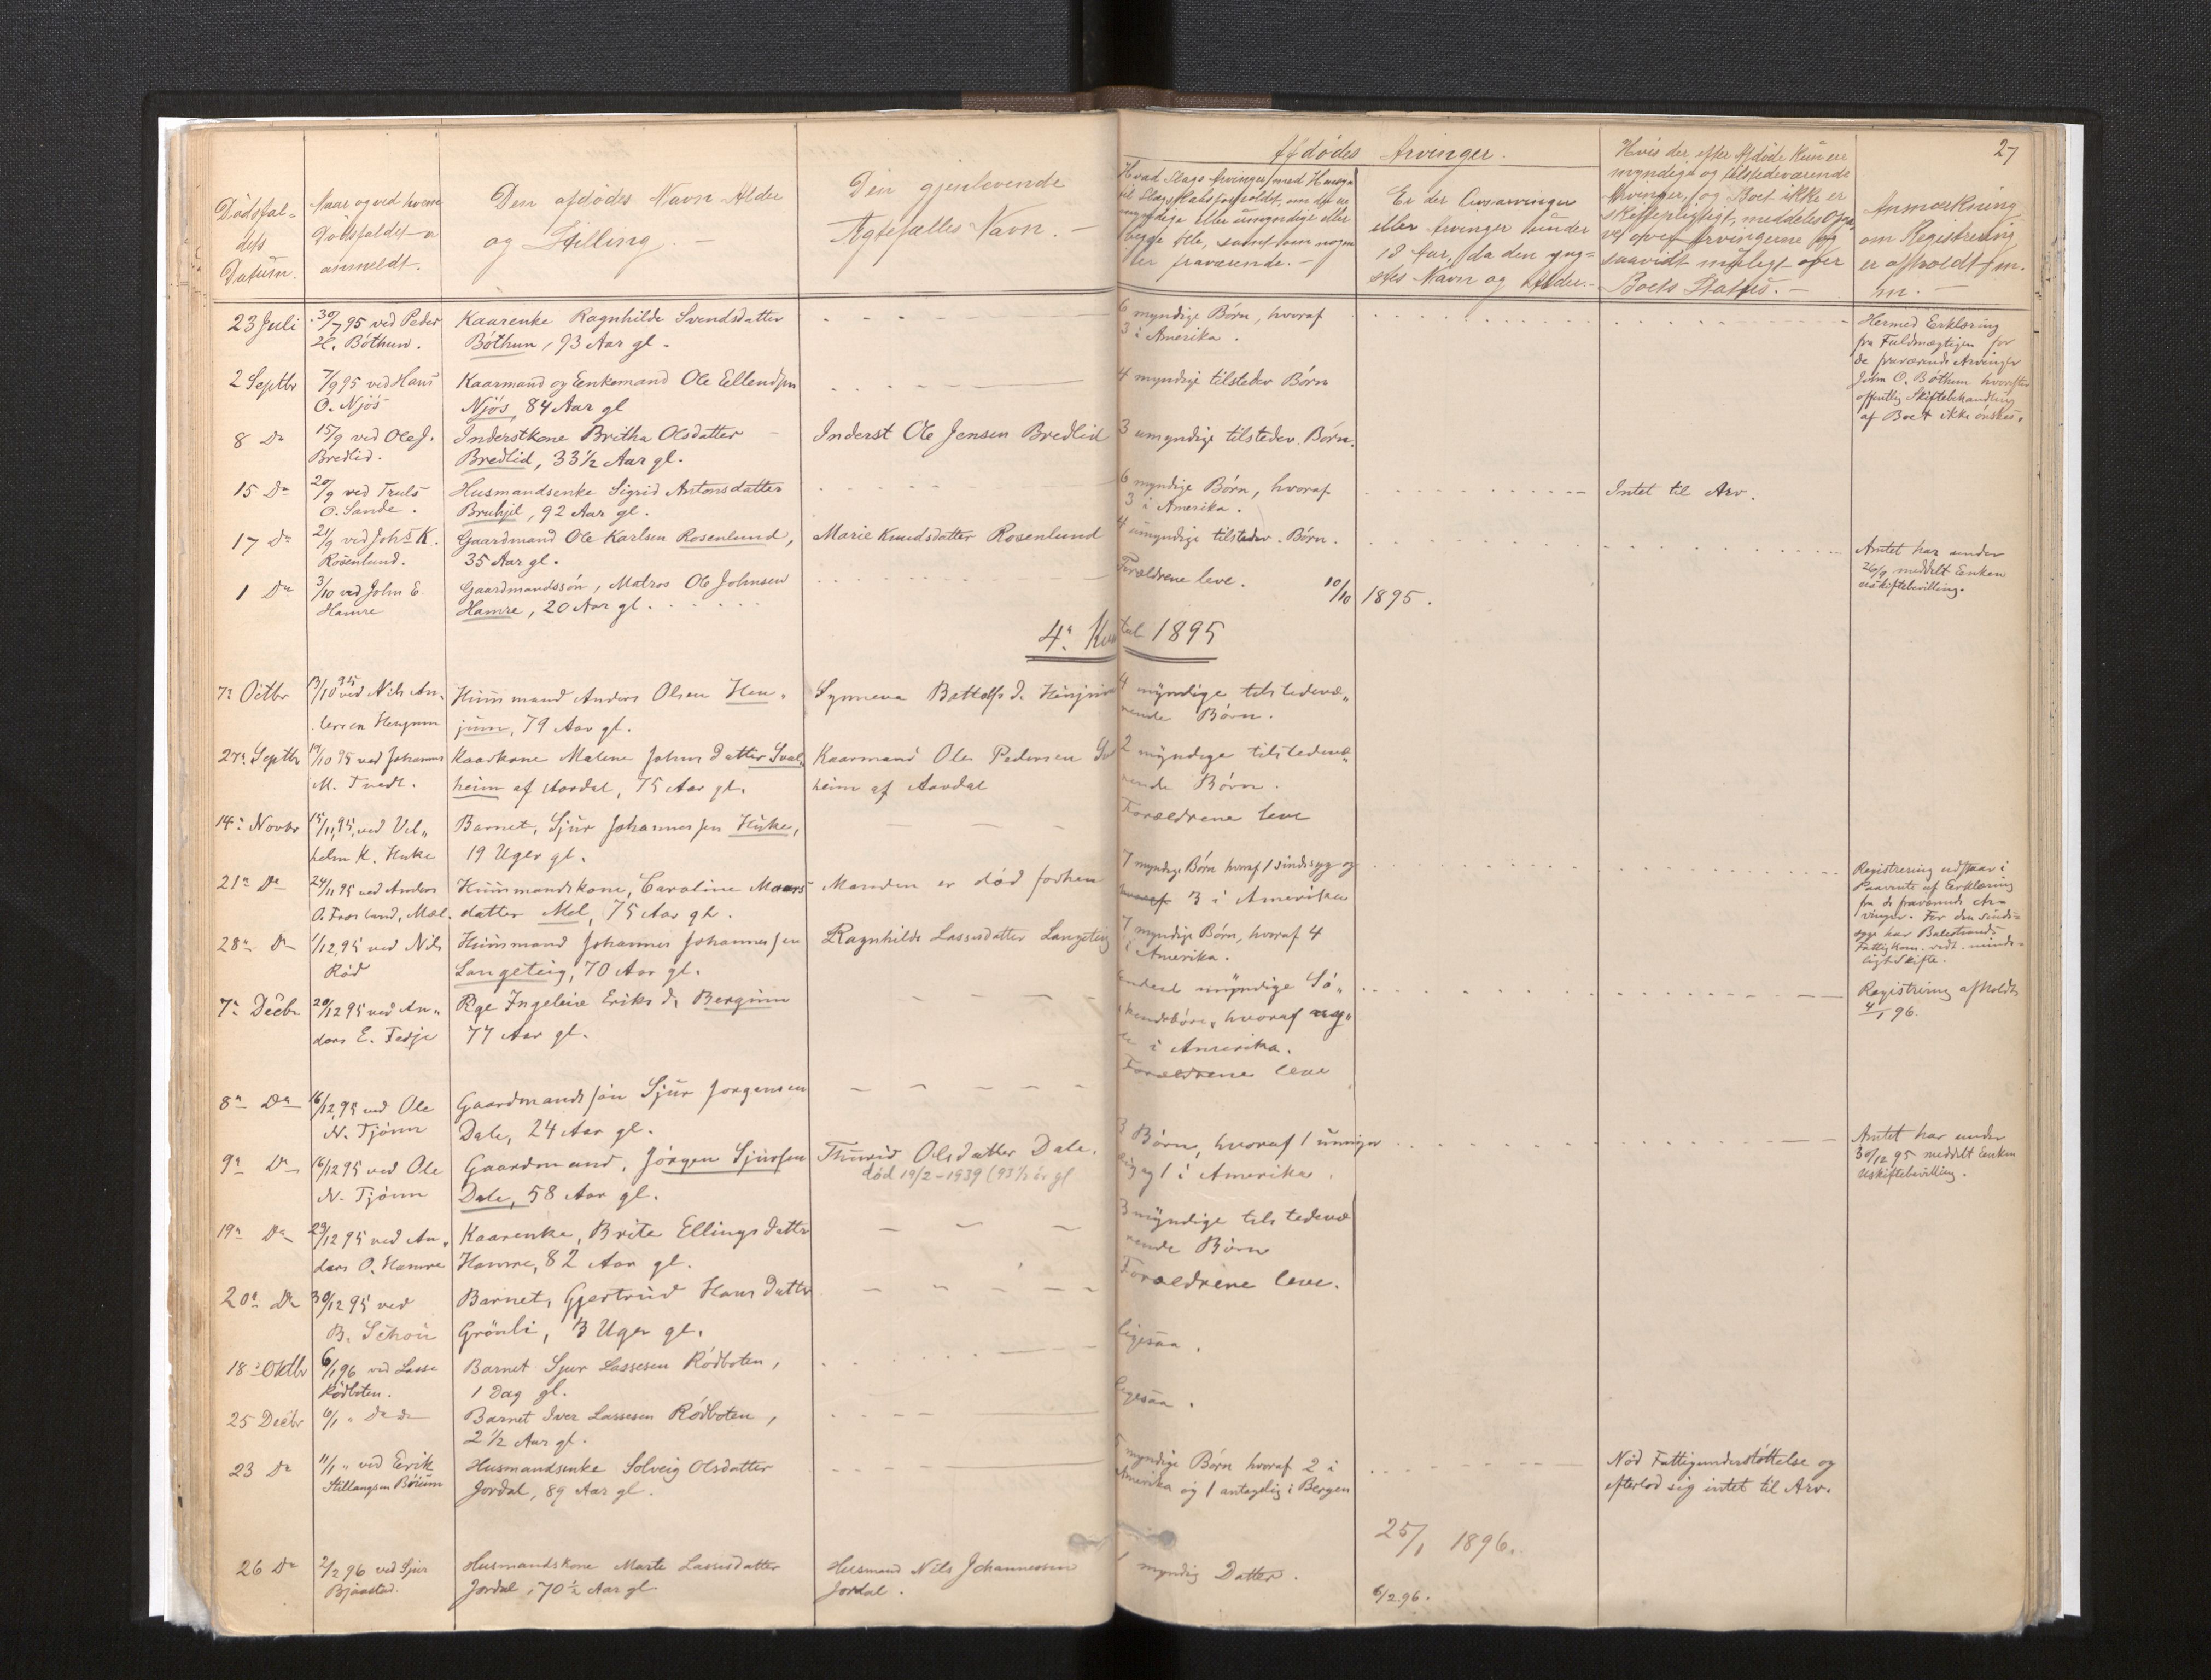 27
Dödsfal-
dets
Datum.
Naar og ved hvem
Dödsfaldet er
anmeldt.
Den afdödes Navn Alder
og Stilling. -
Den gjenlevende
Ægtefælles Navn. -
Afdödes Arvinger.
Hvad Slags Arvinger, med Hensyn
til Slægtskabsforholdt, om de ere
myndige eller umyndige eller
begge Dele, samt om nogen
er fraværende. -
Er der Livsarvinger
eller Arvinger under
18 Aar, da den yng-
stes Navn og Alder. -
Hvis der efter Afdöde kun ere
myndige og tilstedeværende
Arvinger, og Boet ikke er
skiftepligtigt, meddeles Opgave
over Arvingerne og
saavidt muligt over
Boets Status. -
Anmærkning
om Registrering
er afholdt m.
m. -
23 Juli
30/7 95 ved Peder
Böthun.
Kaarenke Ragnhilde Svendsdatter
Böthun, 93 Aar gl.
6 myndige Börn, hvoraf
3 i Amerika.
Hermed Erklæring
fra Fuldmægtigen for
de fraværende Arvinger
John O. Böthun hvorefter
offentlig Skiftebehandling
af Boet ikke önskes.
2 Septbr
7/9 95 ved Hans
O. Njös
Kaarmand og Enkemand Ole Ellendsen
Njös, 84 Aar gl
4 myndige tilstedev Börn
8 Do
15/9 ved Ole J.
Bredlid.
Inderstkone Britha Olsdatter
Bredlid, 33 1/2 Aar gl.
Inderst Ole Jensen Bredlid
3 umyndige tilstedev. Börn.
15 Do
20/9 ved Truls
O. Sande.
Husmandsenke Sigrid Antonsdatter
Bruhjel, 92 Aar gl.
6 myndige Börn, hvoraf
3 i Amerika.
Intet til Arv.
17 Do
21/9 ved Johs K.
Rosenlund.
Gaardmand Ole Karlsen Rosenlund,
35 Aar gl.
Marie Knudsdatter Rosenlund
4 umyndige tilstedev. Börn.
Amtet har under
26/9 meddelt Enken
uskiftebevilling.
1 Do
3/10 ved John E.
Hamre
Gaardmandssön, Matros Ole Johnsen
Hamre, 20 Aar gl.
Forældrene leve.
10/10 1895.
4. Kvartal 1895
7. Octbr
13/10 95 ved Nils An-
Hengjum
Huusmand Anders Olsen Hen-
jum, 79 Aar gl.
Synneva Battolfs d.
4 myndige tilstedevæ-
rende Börn.
27. Septbr
19/10 95 ved Johannes
M. Tvedt.
Kaarkone Malene Johnsdatter Sval-
heim af Aardal, 75 Aar gl.
Kaarmand Ole Pedersen Sv
heim af Aardal
2 myndige tilstedevæ-
rende Börn.
14. Novbr
15/11 95 ved Vil-
helm K. Huke
Barnet, Sjur Johannessen Huke,
19 Uger gl.
Forældrene leve
21. Do
24/11 95 ved Anders
O. Froslund, Mæl.
Huusmandskone, Caroline Moars
datter Mel, 75 Aar gl.
Manden er död forhen
7 myndige Börn hvoraf 1 sindssyg og
hvoraf 3 i Amerika
Registrering udstaar i
Paavente af Erklæring
fra de fraværende Ar-
vinger. For den sinds-
syge har Balestrands
Fattigkom. vedt. minde-
ligt Skifte.
28. Do
1/12 95 ved Nils
Röd
Huusmand Johannes Johannessen
Langeteig, 70 Aar gl.
Ragnhilde Lassesdatter Langeteig
7 myndige Börn, hvoraf 4
i Amerika.
7. Decbr
20/12 95 ved An-
ders E. Fedje
Pge Ingeleive Eriks d. Bergum
77 Aar gl.
myndige Sö-
skendebörn, hvoraf nog-
le i Amerika.
Registrering afholdt
4/1 96.
8. Do
16/12 95 ved Ole
N. Tjönn
Gaardmandssön Sjur Jorgensen
Dale, 24 Aar gl.
Forældrene leve
9. Do
16/12 95 ved Ole
N. Tjönn
Gaardmand, Jörgen Sjursen
Dale, 58 Aar gl.
Thurid Olsdatter Dale.
död 19/2-1939 (93 1/2 år gl
3 Börn, hvoraf 1 umyn-
dig og 1 i Amerika.
Amtet har under
30/12 95 meddelt Enken
uskiftebevilling.
19. Do
23/12 95 ved An-
ders O. Hamre
Kaarenke, Brite Ellings datter
Hamre, 82 Aar gl.
3 myndige tilstedevæ
rende Börn
20. Do
30/12 95 ved
B. Schou
Barnet, Gjertrud Hansdatter
Grönli, 3 Uger gl.
Forældrene leve.
18. Oktbr
6/1 96 ved Lasse
Rödboten.
Barnet Sjur Lassesen Rödboten,
1 Dag gl.
ligesaa.
25 Decbr
6/1 " Do do
Barnet Iver Lassesen Rödboten,
2 1/2 Aar gl.
ligesaa.
23 Do
11/1 " ved Eerik
Stillaugsen Böium
Husmandsenke Solveig Olsdatter
Jordal, 89 Aar gl.
5 myndige Börn hvoraf 2 i
Amerika og 1 antagelig i Bergen
Nöd Fattigunderstöttelse og
efterlod sig intet til Arv.
25/1 1896.
26 Do
2/2 96 ved Sjur
Bjaastad.
Husmandskone Marte Lassesdatter
Jordal, 70 1/2 Aar gl.
Husmand Nils Johannessen
Jordal.
1 myndig Datter.
6/2.96.